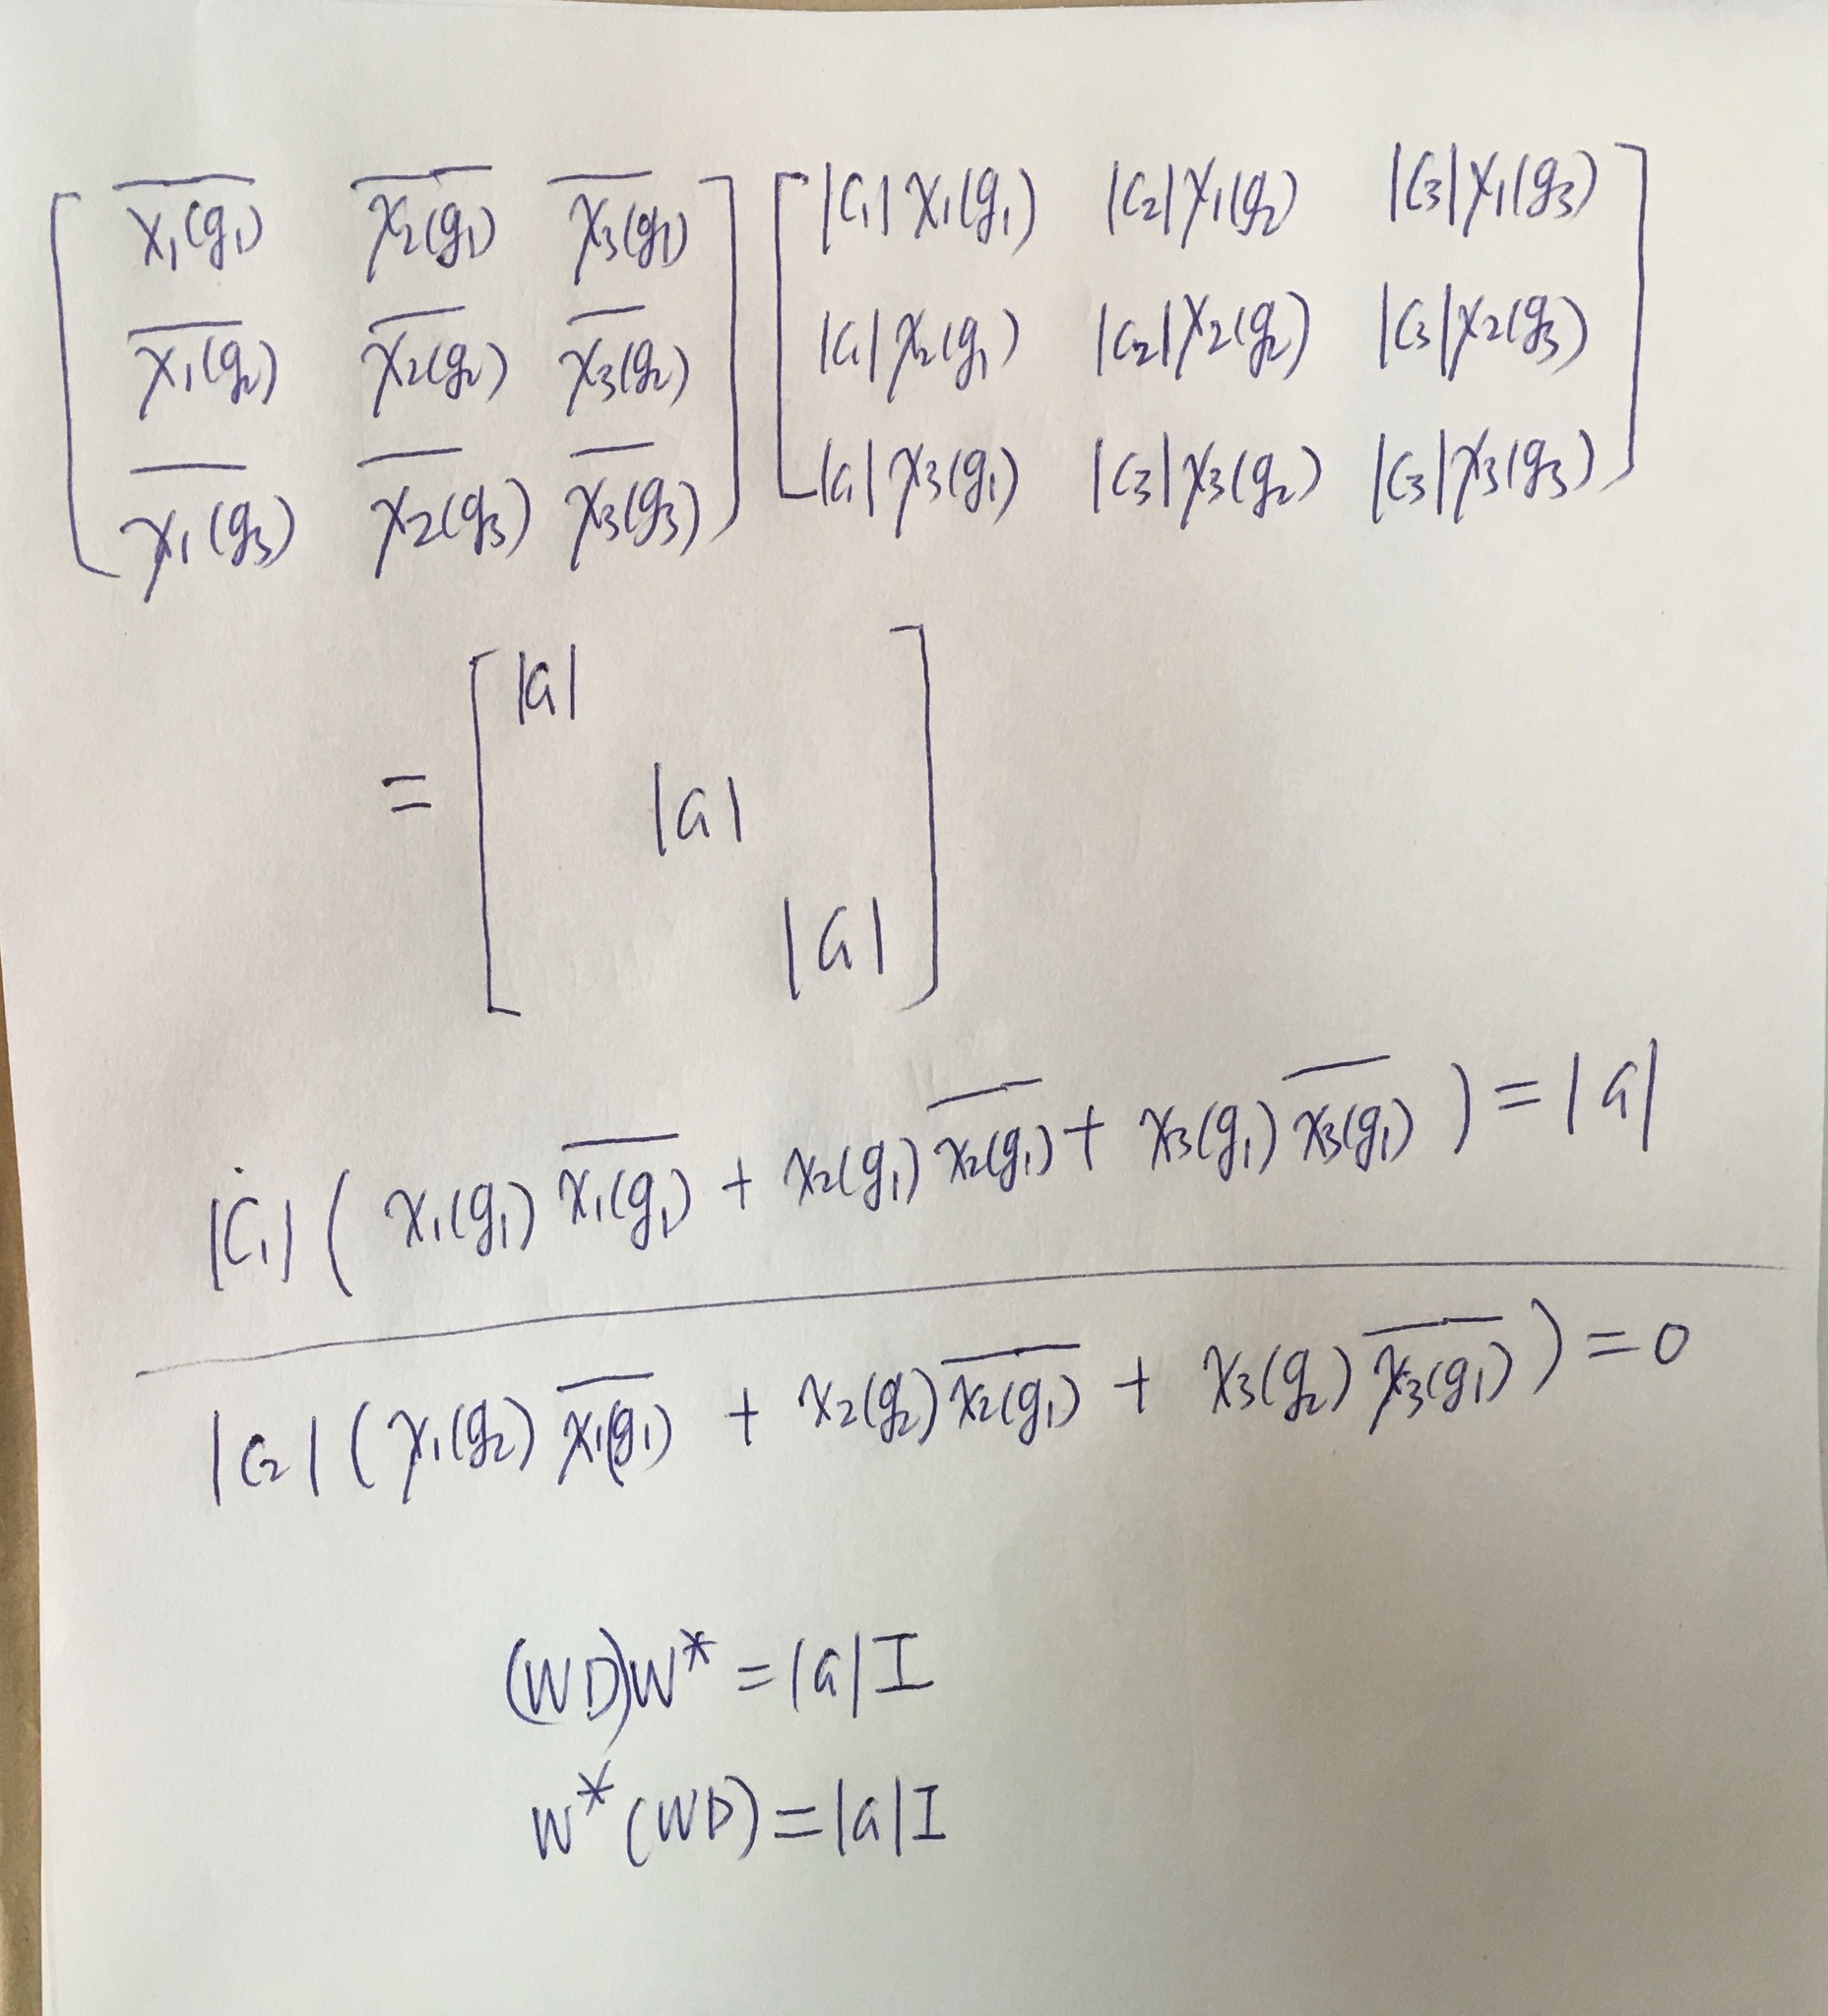 [ \overline{χ₁(g₁)} \overline{χ₂(g₁)} \overline{χ₃(g₁)} ] [ |C₁|χ₁(g₁) |C₂|χ₁(g₂) |C₃|χ₁(g₃) ]
[ \overline{χ₁(g₂)} \overline{χ₂(g₂)} \overline{χ₃(g₂)} ] [ |C₁|χ₂(g₁) |C₂|χ₂(g₂) |C₃|χ₂(g₃) ]
[ \overline{χ₁(g₃)} \overline{χ₂(g₃)} \overline{χ₃(g₃)} ] [ |C₁|χ₃(g₁) |C₃|χ₃(g₂) |C₃|χ₃(g₃) ]
[ |G| ]
= [ |G| ]
[ |G| ]
|C₁| ( χ₁(g₁) \overline{χ₁(g₁)} + χ₂(g₁) \overline{χ₂(g₁)} + χ₃(g₁) \overline{χ₃(g₁)} ) = |G|
|C₂| ( χ₁(g₂) \overline{χ₁(g₁)} + χ₂(g₂) \overline{χ₂(g₁)} + χ₃(g₂) \overline{χ₃(g₁)} ) = 0
(WD)W* = |G| I
W*(WD) = |G| I